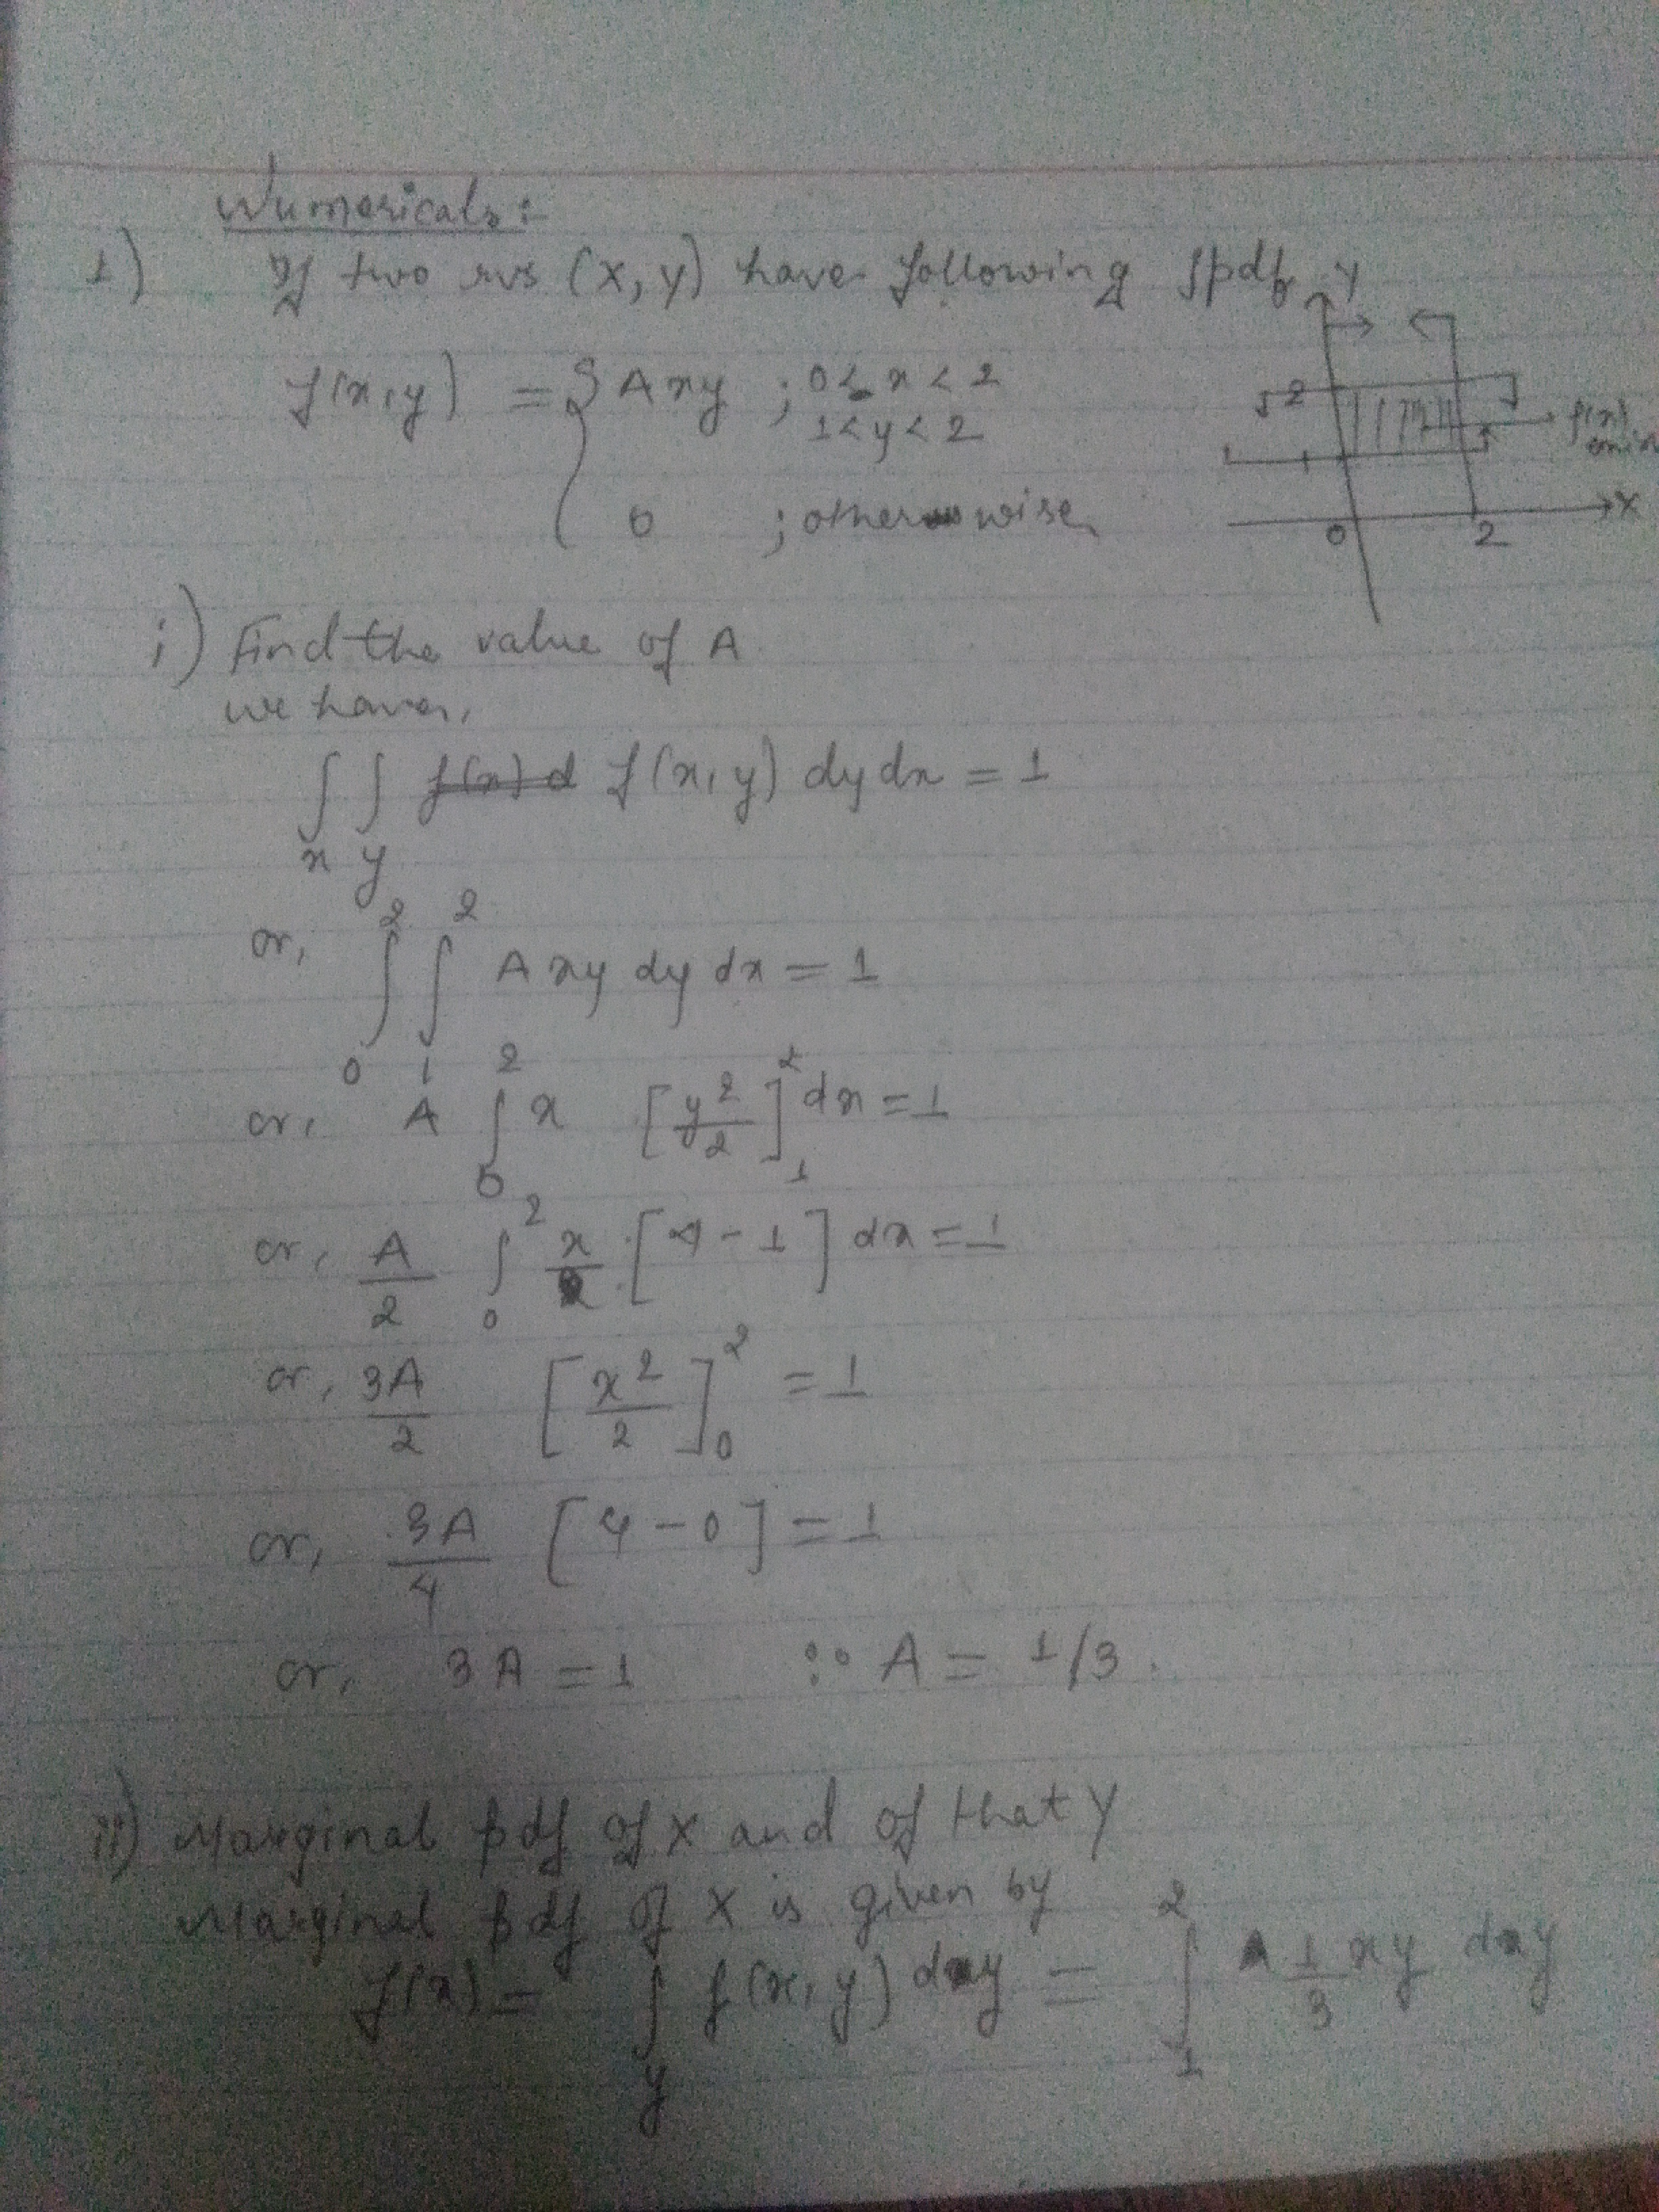 Numericals:
1) If two rvs (X, Y) have following jpdf
f(x,y) = { Axy ; 0 < x < 2
1 < y < 2
0 ; otherwise
Y
2
f(x)
1
X
0 2
i) Find the value of A
we have,
∫x ∫y f(x) d f(x,y) dy dx = 1
or, ∫₀² ∫₁² A xy dy dx = 1
or, A ∫₀² x [y²/2]₁² dx = 1
or, A/2 ∫₀² x [4 - 1] dx = 1
or, 3A/2 [x²/2]₀² = 1
or, 3A/4 [4 - 0] = 1
or, 3A = 1 ∴ A = 1/3.
ii) Marginal pdf of X and of that Y
Marginal pdf of X is given by
f(x) = ∫y f(x,y) dy = ∫₁² 1/3 xy dy